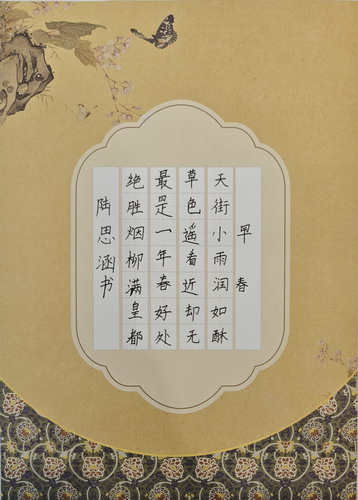 早春
天街小雨润如酥
草色遥看近却无
最是一年春好处
绝胜烟柳满皇都
陆思涵书